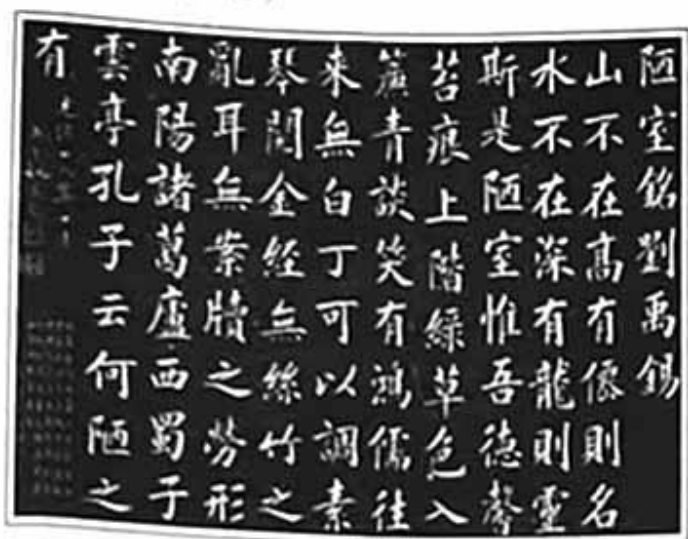 陋室銘劉禹錫
山不在髙有僊則名
水不在深有龍則靈
斯是陋室惟吾德馨
苔痕上階綠草色入
簾青談笑有鴻儒往
来無白丁可以調素
琴閱金經無絲竹之
亂耳無案牘之勞形
南陽諸葛廬西蜀于
雲亭孔子云何陋之
有